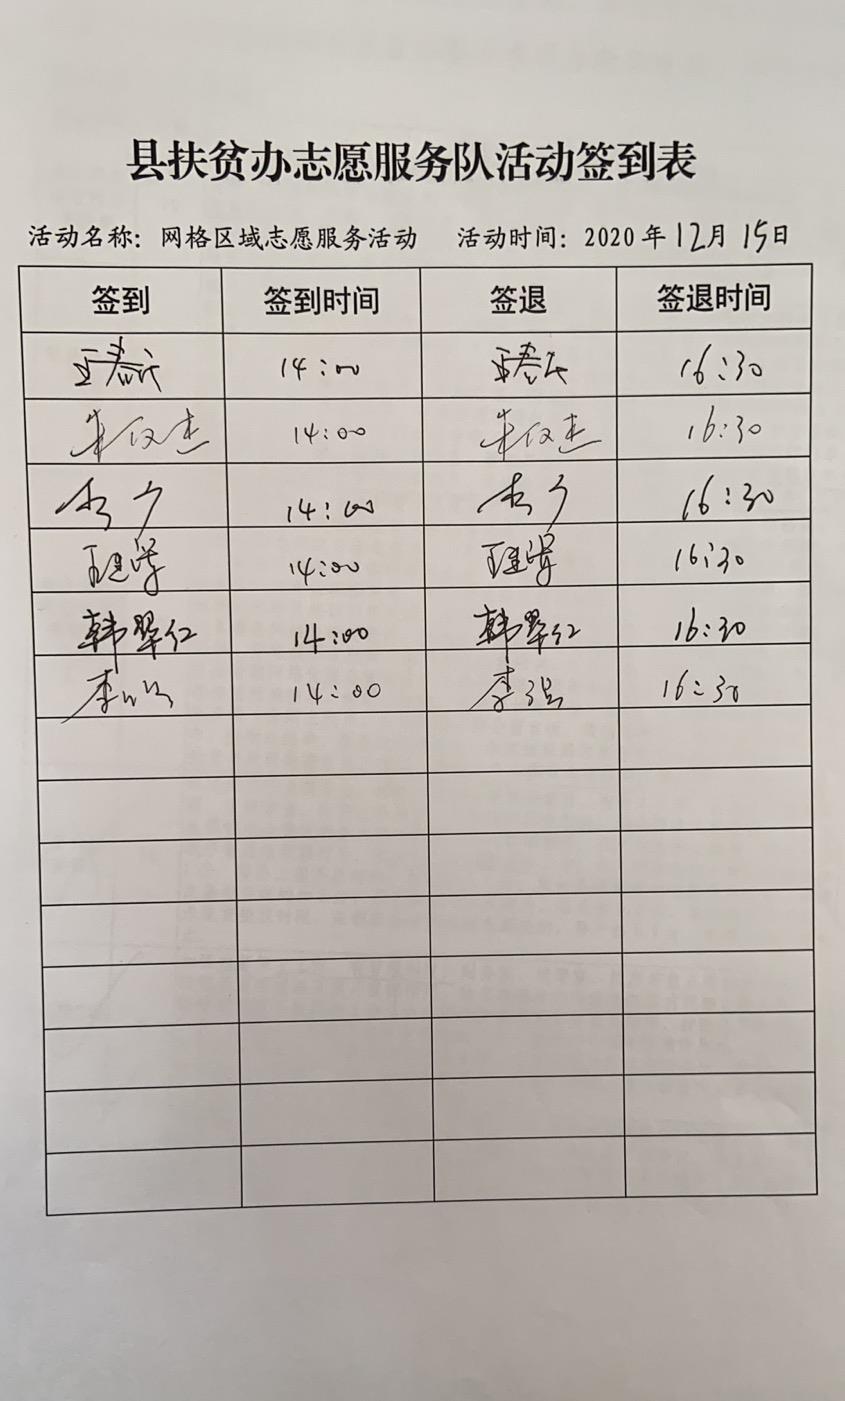 县扶贫办志愿服务队活动签到表
活动名称：网格区域志愿服务活动 活动时间：2020年12月15日
签到 签到时间 签退 签退时间
14:00 16:30
14:00 16:30
14:00 16:30
14:00 16:30
韩翠红 14:00 韩翠红 16:30
14:00 李强 16:30